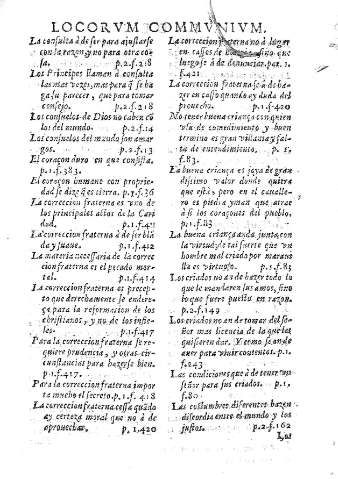 LOCORVM COMMVNIVM.
La consulta à de ser para ajustarse
con la razon, y no para otra cosa.
p.2.f.218
Los Principes llaman à consulta
las mas vezes, mas para q̃ se haga
su parecer, que para tomar
consejo. p.2.f.218
Los consuelos de Dios no caben cõ
los del mundo. p.2.f.14
Los consuelos del mundo son amargos.
p.2.f.13
El coraçon duro en que consista.
p.1.f.383.
El coraçon humano con propriedad
se dize q̃ es tierra. p.1.f.36
La correccion fraterna es vno de
los principales actos de la Caridad.
p.1.f.411
La correccion fraterna à de ser blãda
y suaue. p.1.f.412
La materia necessaria de la correccion
fraterna es el pecado mortal.
p.1.f.414
La correccion fraterna es precepto
que derechamente se endereça
para la reformacion de los
christianos, y no de los infieles.
p.1.f.417
Para la correccion fraterna se requiere
prudencia, y otras circunstancias
para hazerse bien.
p.1.f.417.
Para la correccion fraterna importa
mucho el secreto. p.1.f.418
La correccion fraterna cessa quãdo
ay certeza moral que no à de
aprouechar. p.1.420
La correccion fraterna no à lugar
en casos de
luego se à de denunciar. par.1.
f.421
La correccion fraterna se à de hazer
en caso quando ay duda del
prouecho. p.1.f.420
No tener buena criança con quien
vsa de comedimiento y buen
termino es gran villania y falta
de entendimiento. p.1.
f.83.
La buena criança es joya de grandissimo
valor donde quiera
que està; pero en el cauallero
es piedra yman que atrae
à si los coraçones del pueblo.
p.1.f.83
La buena criança anda junta con
la virtud, y de tal suerte que vn
hombre mal criado por marauilla
es virtuoso. p.1.f.83
Los criados no an de hazer todo lo
que le mandaren sus amos, sino
lo que fuere puesto en razon.
p.2.f.149
Los criados no an de tomar del señor
mas licencia de la que les
quisieren dar. Y como se an de
auer para viuir contentos. p.1.
f.243
Las condiciones que à de tener vn
señor para sus criados. p.1.
f.80.
Las costumbres diferentes hazen
discordia entre el mundo y los
justos. p.2.f.162